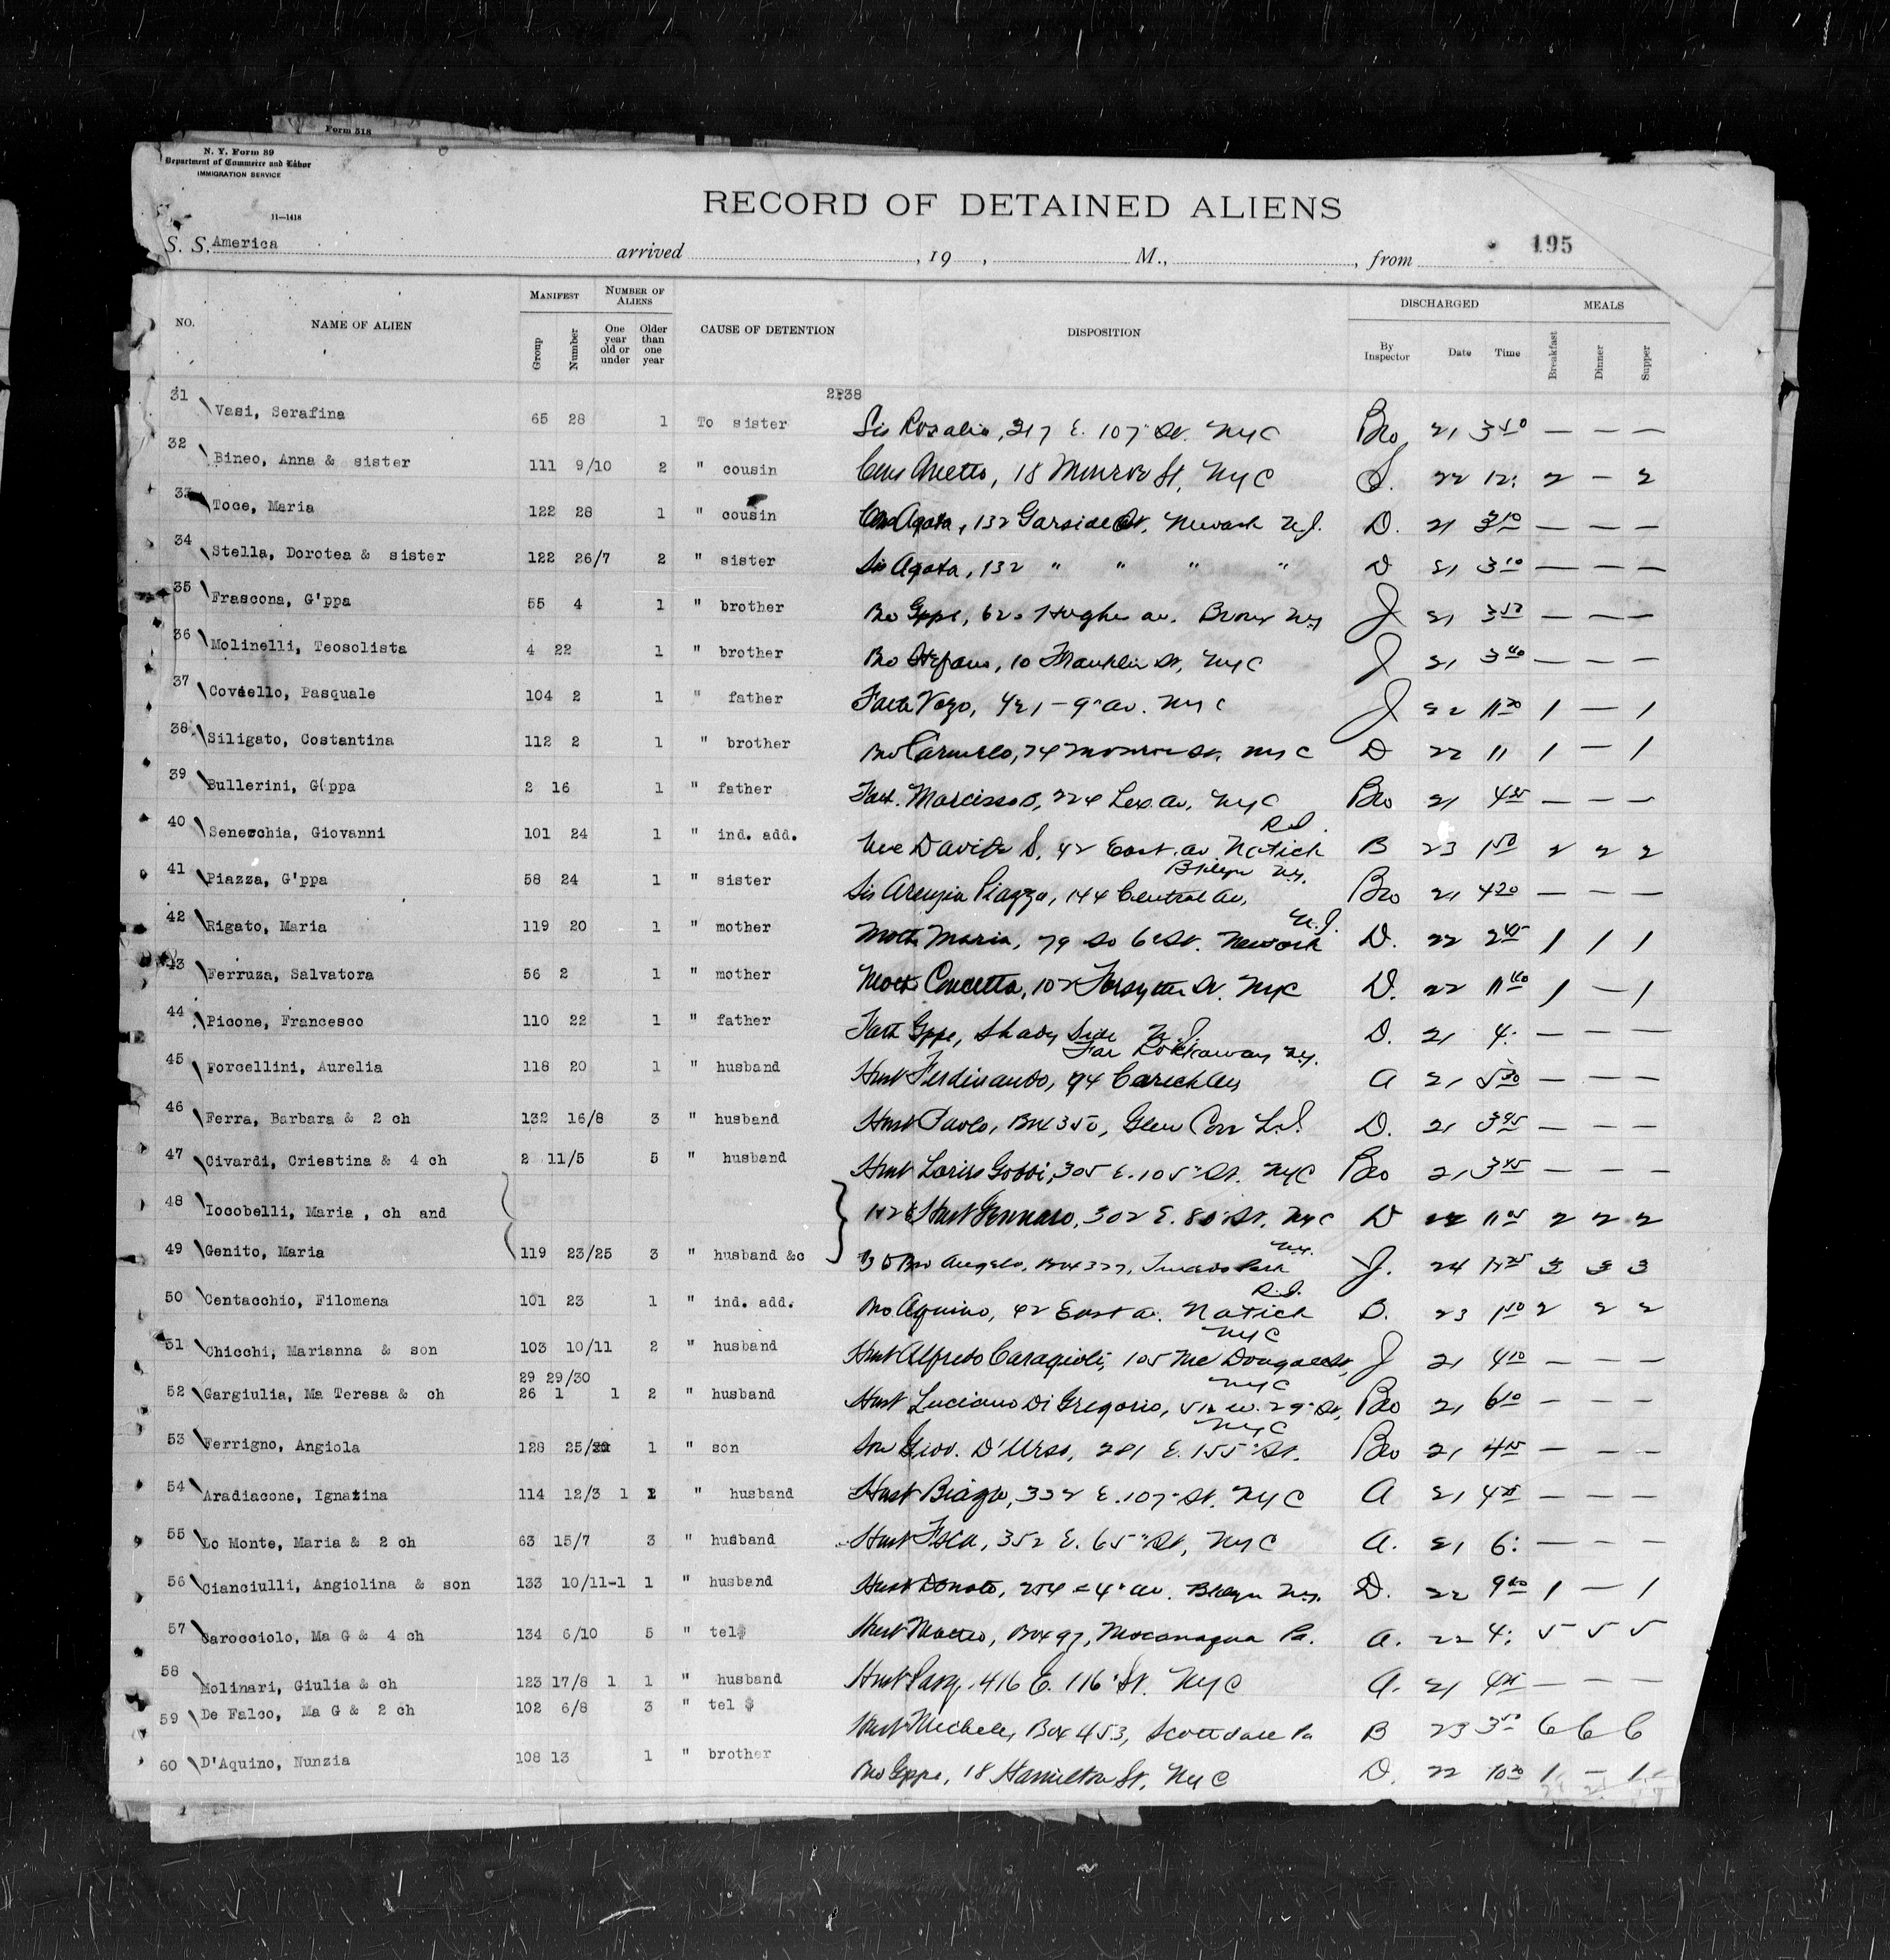 Form 518
N. Y. Form 89
Department of Commerce and Labor
IMMIGRATION SERVICE
11—1418
RECORD OF DETAINED ALIENS
195
S. S. America arrived , 19 , M., , from
NO. NAME OF ALIEN MANIFEST NUMBER OF ALIENS CAUSE OF DETENTION DISPOSITION DISCHARGED MEALS
Group Number One year old or under Older than one year By Inspector Date Time Breakfast Dinner Supper
31 Vasi, Serafina 65 28 1 To sister Sis Rosalia, 317 E. 107" St. NYC Bro 21 3 50 — — —
32 Bineo, Anna & sister 111 9/10 2 " cousin 18 Monroe St, NYC S. 22 12: 2 — 2
33 Toce, Maria 122 28 1 " cousin Agata, 132 Garside St, Newark N.J. D. 21 3 10 — — —
34 Stella, Dorotea & sister 122 26/7 2 " sister Sis Agata, 132 " " " " D 21 3 10 — — —
35 Frascona, G'ppa 55 4 1 " brother Bro Gppe, 620 Hughes av. Bronx NY J 21 — — —
36 Molinelli, Teosolista 4 22 1 " brother Bro Stefano, 10 Franklin St, NYC J 21 3 40 — — —
37 Coviello, Pasquale 104 2 1 " father Fath Vozo, 421 – 9" av. NYC J 22 11 20 1 — 1
38 Siligato, Costantina 112 2 1 " brother Bro Carmelo, 74 Monroe St, NYC D 22 11 1 — 1
39 Bullerini, G(ppa 2 16 1 " father Fath. Marcisso B, 224 Lex. av, NYC Bro 21 4 35 — — —
40 Senecchia, Giovanni 101 24 1 " ind. add. Davide S. 42 East. av Natick R.I. B 23 1 50 2 2 2
41 Piazza, G'ppa 58 24 1 " sister Sis Piazza, 144 Central av, Bklyn NY. Bro 21 4 20 — — —
42 Rigato, Maria 119 20 1 " mother Moth Maria, 79 So 6" St. Newark N.J. D. 22 2 45 1 1 1
43 Ferruza, Salvatora 56 2 1 " mother Moth Concetta, 102 Forsythe St. NYC D. 22 11 40 1 — 1
44 Picone, Francesco 110 22 1 " father Fath Gppe, Shady Side N.J. D. 21 4: — — —
45 Forcellini, Aurelia 118 20 1 " husband Husb Ferdinando, 94 Far Rockaway NY. A 21 5 30 — — —
46 Ferra, Barbara & 2 ch 132 16/8 3 " husband Husb Paolo, Box 350, Glen Cove L.I. D. 21 — — —
47 Civardi, Criestina & 4 ch 2 11/5 5 " husband Husb 305 E. 105" St. NYC Bro 21 3 45 — — —
48 Iocobelli, Maria , ch and Husb Gennaro, 302 E. 80" St. NYC D 22 11 2 2 2
49 Genito, Maria 119 23/25 3 " husband &c Bro Angelo, Box 377, Tuxedo Park NY. J. 24 3 3 3
50 Centacchio, Filomena 101 23 1 " ind. add. Bro Aquino, 42 East a. Natick R.I. B. 23 1 50 2 2 2
51 Chicchi, Marianna & son 103 10/11 2 " husband Husb Alfredo Caragioli, 105 Mc Dougall St, NYC J 21 4 10 — — —
29 29/30
52 Gargiulia, Ma Teresa & ch 26 1 1 2 " husband Husb Luciano Di Gregorio, 512 W. 29" St, NYC Bro 21 6 10 — — —
53 Ferrigno, Angiola 128 25/ 1 " son Son Giov. D'Urso, 281 E. 155" St. NYC Bro 21 4 15 — — —
54 Aradiacone, Ignazina 114 12/3 1 1 " husband Husb Biagio, 332 E. 107" St. NYC A 21 4 25 — — —
55 Lo Monte, Maria & 2 ch 63 15/7 3 " husband Husb 352 E. 65" St, NYC A. 21 6: — — —
56 Cianciulli, Angiolina & son 133 10/11-1 1 " husband Husb Donato, 254 – 4" av. Bklyn NY. D. 22 9 1 — 1
57 Carocciolo, Ma G & 4 ch 134 6/10 5 " tel$ Husb Matteo, Box 97, Mocanaqua Pa. A. 22 4: 5 5 5
58 Molinari, Giulia & ch 123 17/8 1 1 " husband Husb Pasq. 416 E. 116" St. NYC A. 21 4 25 — — —
59 De Falco, Ma G & 2 ch 102 6/8 3 " tel $ Husb Michele, Box 453, Scottdale Pa B 23 3 50 6 6 6
60 D'Aquino, Nunzia 108 13 1 " brother Bro Gppe, 18 Hamilton St, NYC D. 22 10 30 1 — 1